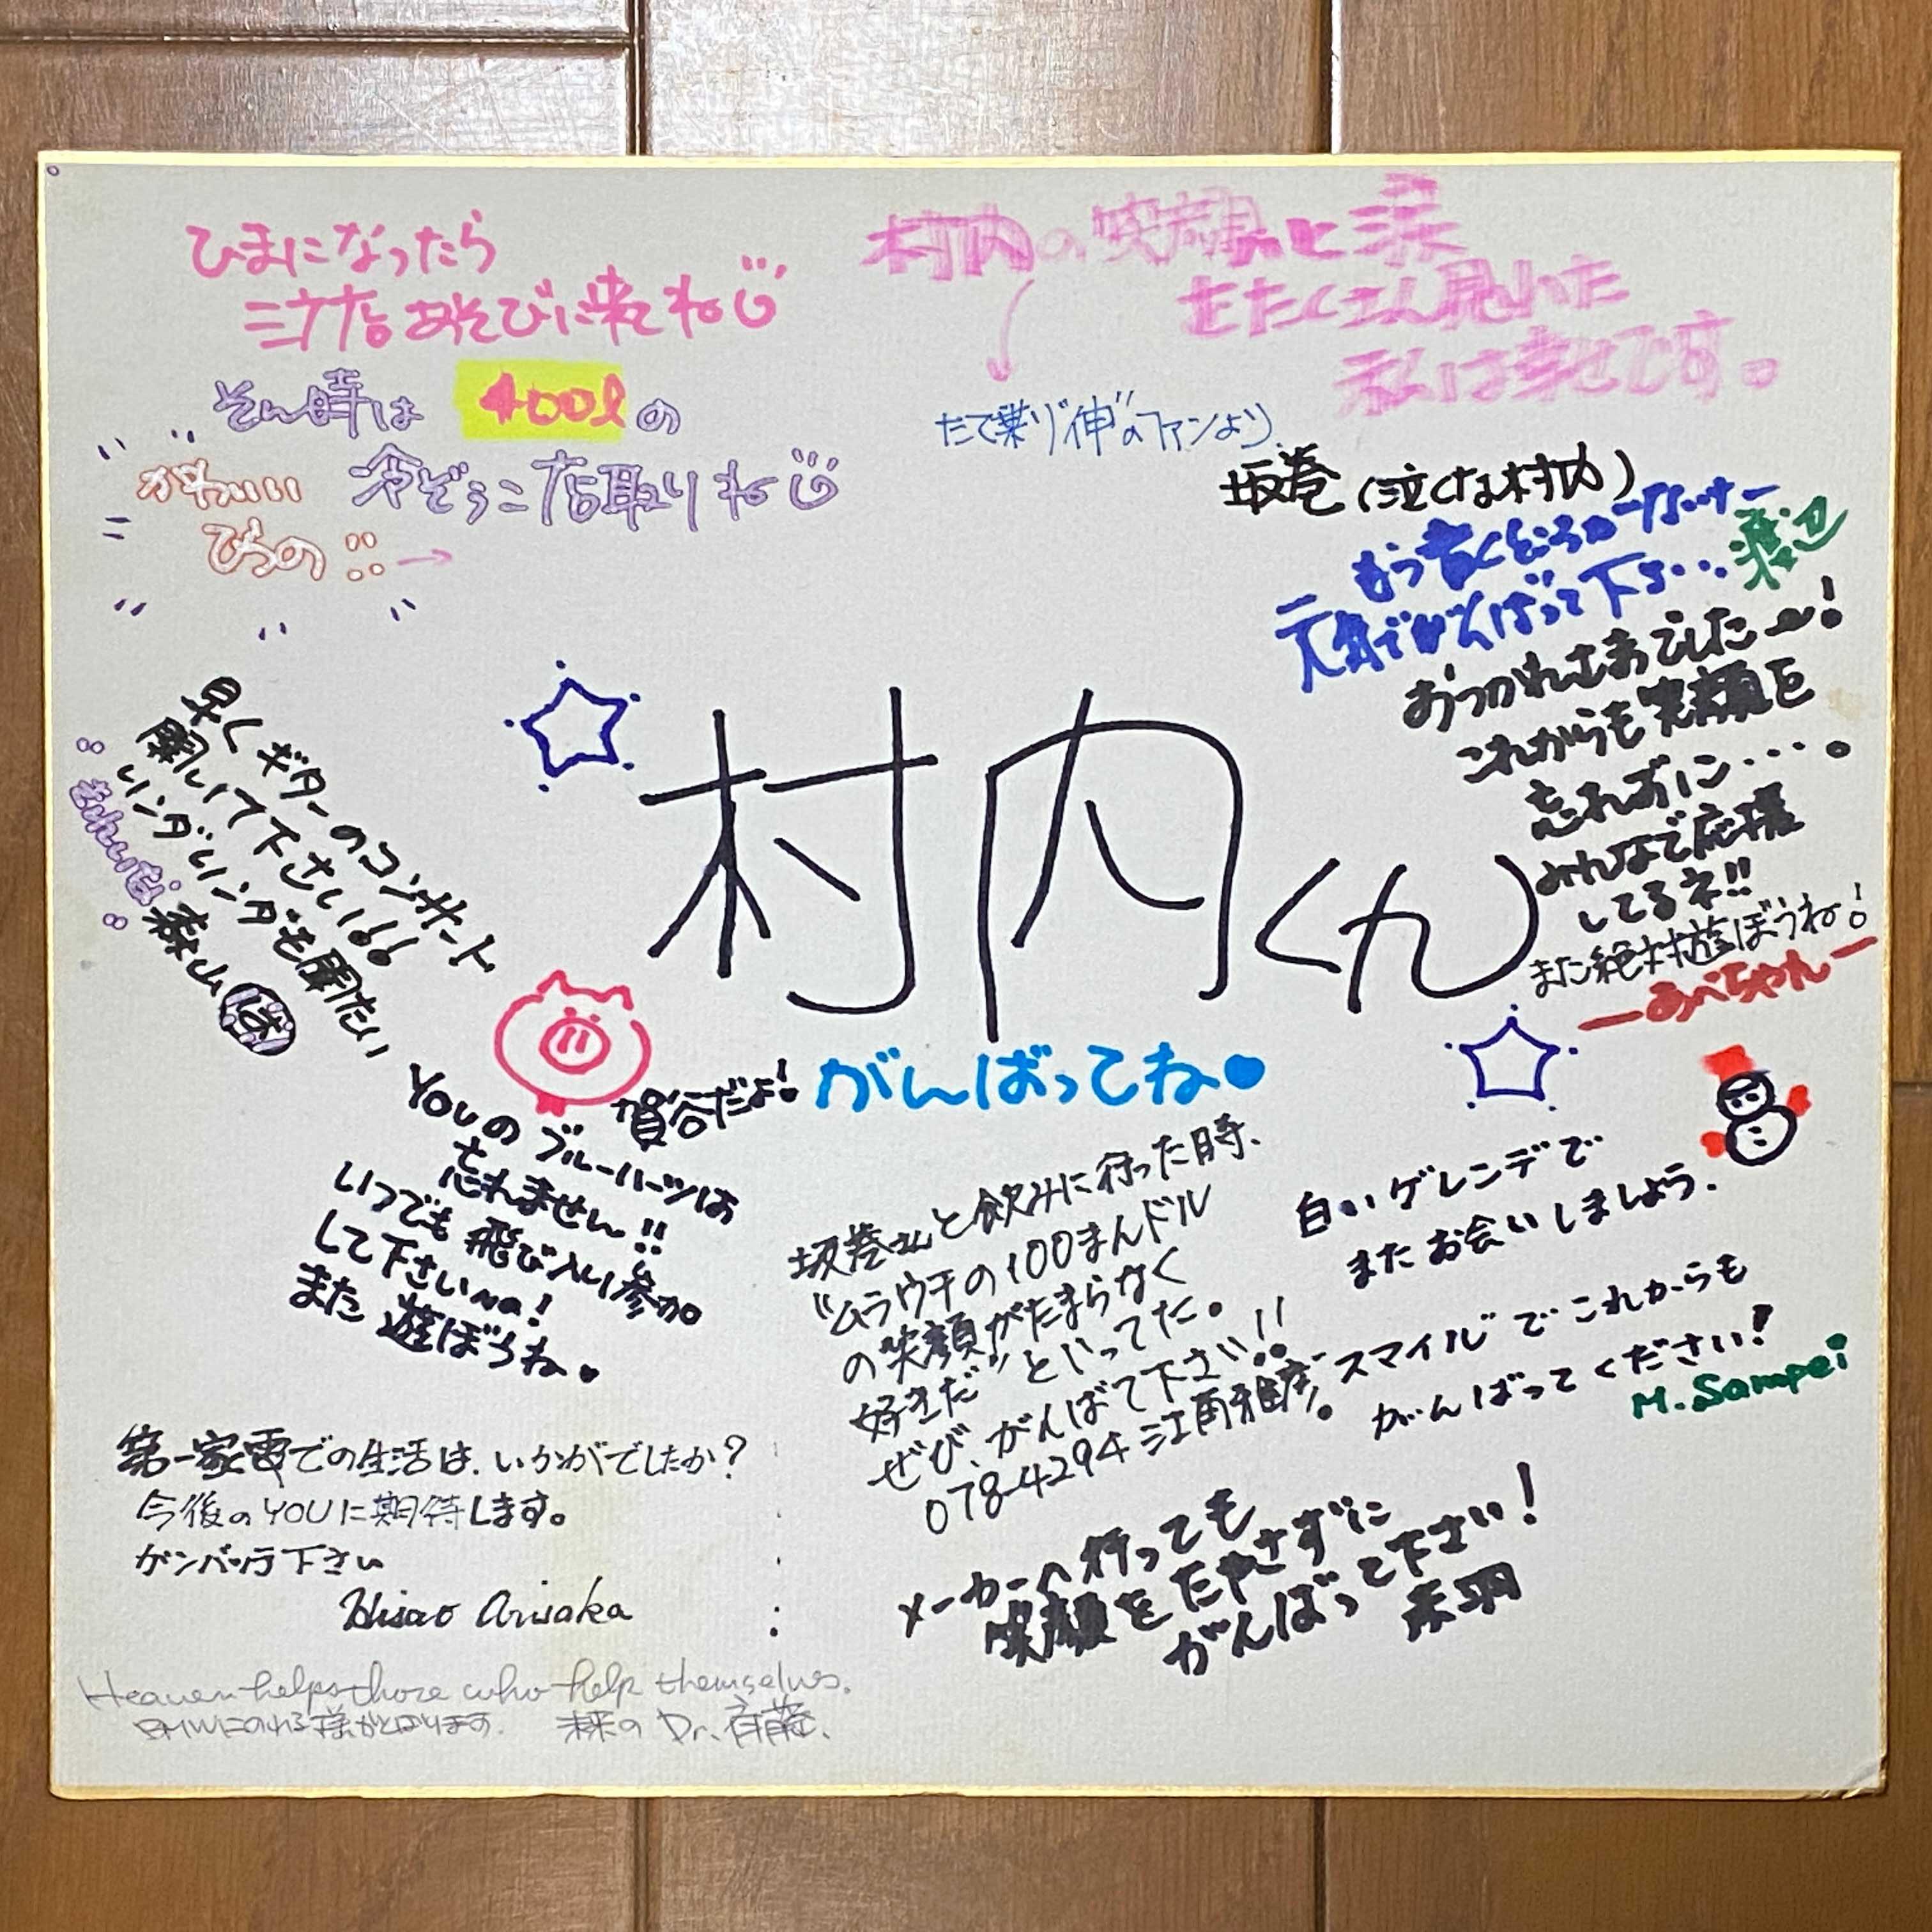 ひまになったら
立店あそびに来てね
そん時は 400ℓの
冷ぞうこ店取りね
かわいい
ひろの
村内の笑顔と涙
をたくさん見れた
私は幸せです。
たて乗り"伸"のファンより
坂巻(泣くな村内)
元気でがんばって下さい… 渡辺
おつかれさまでした〜!
これからも笑顔を
忘れずに……。
みんなで応援
してるネ!!
また絶対遊ぼうね!
ーあべちゃんー
早くギターのコンサート
開いて下さい!!
リンダリンダも聞きたい
きれいな
森山
村内くん
がんばってね
賀谷だよ!
YOUのブルーハーツは
忘れません!!
いつでも飛び入り参加
して下さいna!
また遊ぼうね。
坂巻さんと飲みに行った時、
"ムラウチの100まんドル
の笑顔がたまらなく
好きだ"といってた。
ぜひ、がんばて下さい!!
078-4294 江南雅彦。
白いゲレンデで
またお会いしましょう.
スマイルでこれからも
がんばってください!
M. Sampei
第一家電での生活は、いかがでしたか?
今後のYOUに期待します。
ガンバッテ下さい
Hisao Arisaka
メーカーへ行っても
笑顔をたやさずに
がんばって下さい!
赤羽
Heaven helps those who help themselves.
BMWにのれる様がんばります. 未来のDr.斉藤.